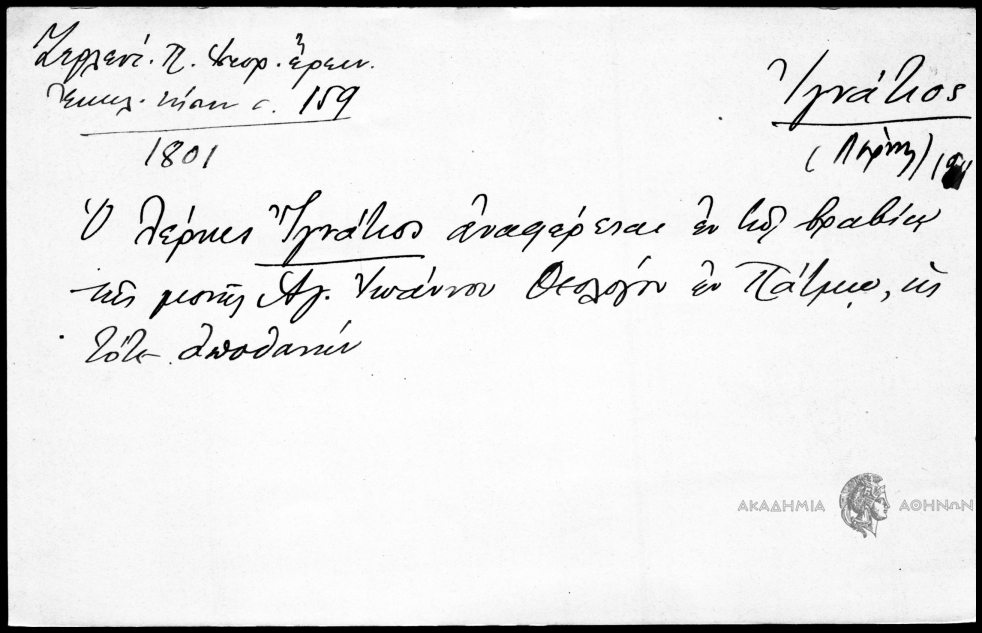 Ζερλέντ. Π. Ιστορ. ἔρευν.
Ἐκκλ. νήσων σ. 159
1801
Ἰγνάτιος
(Λέρνης)
Ὁ Λέρνης Ἰγνάτιος ἀναφέρεται ἐν τῷ βραβίῳ
τῆς μονῆς Ἁγ. Ἰωάννου Θεολόγου ἐν Πάτμῳ, ὡς
τότε ἀποθανών
ΑΚΑΔΗΜΙΑ ΑΘΗΝΩΝ